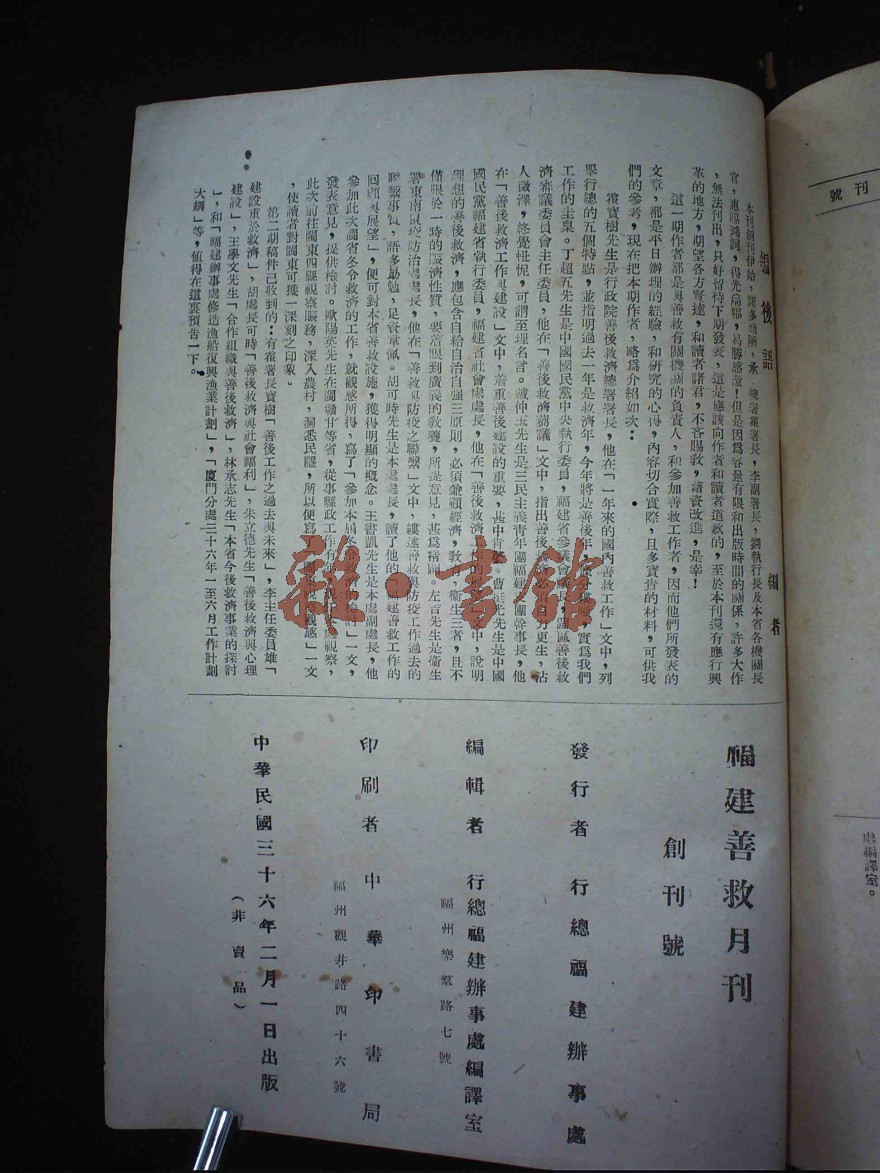 編後語
編者
本刊創刊伊始，諸多
承 總署霍署長，李副署長，劉執行長及本省各機關長
官，惠賜鴻詞，得光篇幅，曷勝感激！但是因為容量有限和出版時間的關係，許多大作
，無法刊出，只好留待下期發表，這是應該向作者和讀者道歉的，至於本刊還有應行興
革的地方，期望各方賢達，和讀者諸君，不吝賜教，藉資改進，是幸！
這一期作者都是與善救有關機關的負責人，和參加善救工作者，因而他們所發表的
文章，都是平日辦理的經驗，和研究的心得，內容切合實際，且多寶貴的材料，可供我
們的參考，現在把本期作者，略為介紹如次：
霍寶樹先生是行政院善後救濟總署署長，他在「一年來的國內善救工作」文中，列
舉行總的五個特點，並指明過去一年是救濟年，今年將是善後年
實為我們
工作的圭臬。丁超五先生是中國國民黨中央執行委員，福建省參議會議長，
區善後救
濟審議委員會主任委員，他在「善後救濟芻議」文中，指出善後救濟
力更生，沾
人微澤，終覺怩忸，可謂至理名言。戴仲玉先生是三民主義青年團福建
團幹事長，他
在「善後救濟工作與建設」文中，着重善後建設的重要，甚中肯
先生是中國
國民黨福建省執行委員，福建省社會處處長，他在「善後救濟工作
文中，說明
理想的善後救濟，應包含自給自治自強三原則，必須兼顧經濟，教育，衛生三者，且不
僅限於一時的賑濟性質，要着眼到廣義的教養，所提意見，甚為精闢。左吉先生是衛生
署東南鼠疫防治處處長，他在「善救與防疫之聯繫」文中，縷述善救與防疫工作過去的
聯繫事實，語多勗勉，足資韋佩。胡可時先生是本處處長，讀了他的
福建善救工作的
回顧與展望」，便可對本省善救設施，獲得明顯的概念。王書凱先生是本處副處長，他
參加此次閩省冬令救濟的工作，就觀感所得，寫了「參加本屆冬令
」一文，
發表意見，提供檢討。歐陽英先生在閩贛甘等省，從事縣政工作有年
視察，
此次前往閩東四縣視察賑務，深入農村，洞悉民隱，所以便寫
觀感」一文
，使讀者對閩東可獲一深刻之印象。
第二期稿件已收到的：有霍署長寶樹「善後工作之過去與未來」，李主任委員雄「
建設重於救濟」，胡處長可時「善後救濟與社會福利」，朱立德先生「善後救濟與心理
建設」，王學文先生「合作組織與善後救濟」，林承志先生「本省今後救濟事業的探討
」，和「福建辦事處修造漁船復興漁業計劃」，「廈門分處三十六年一至六月工作計劃
大綱」等，值得在這裏預告一下。
福建善救月刊
創刊號
發行者 行總福建辦事處
編輯者 行總福建辦事處編譯室
福州樂羣路七號
印刷者 中華印書局
福州觀井路四十六號
中華民國三十六年二月一日出版
（非賣品）
刊號
處編譯室。
雜·書館